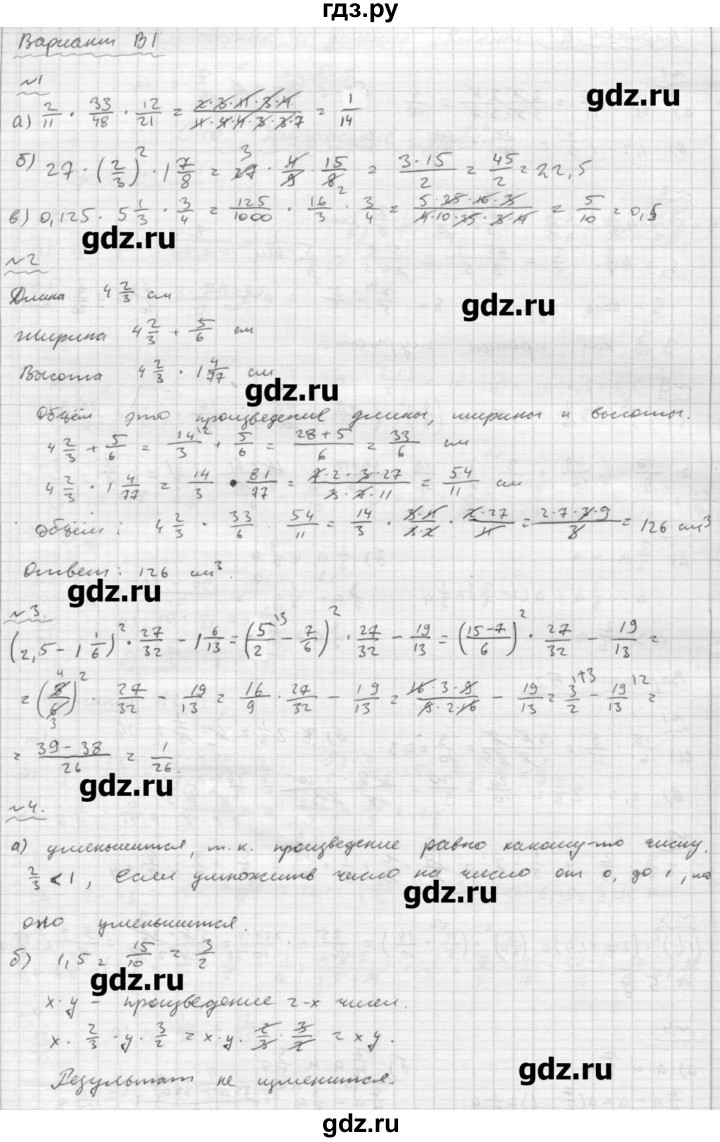 гдз.ру
Вариант В1
№1
а) 2/11 · 33/48 · 12/21 = 2·3·11·3·4/11·4·4·3·3·7 = 1/14
б) 27 · (2/3)² · 1 7/8 = 27 · 4/9 · 15/8 = 3·15/2 = 45/2 = 22,5
в) 0,125 · 5 1/3 · 3/4 = 125/1000 · 16/3 · 3/4 = 5·25·16·3/4·10·25·3·4 = 5/10 = 0,5
№2
Длина 4 2/3 см
Ширина 4 2/3 + 5/6 см
Высота 4 2/3 · 1 4/77 см
Объём это произведение длины, ширины и высоты.
4 2/3 + 5/6 = 14/3 + 5/6 = 28+5/6 = 33/6 см
4 2/3 · 1 4/77 = 14/3 · 81/77 = 7·2·3·27/3·7·11 = 54/11 см
Объём: 4 2/3 · 33/6 · 54/11 = 14/3 · 3·11/3·2 · 2·27/11 = 2·7·3·9/3 = 126 см³
Ответ: 126 см³.
№3.
(2,5 - 1 1/6)² · 27/32 - 1 6/13 = (5/2 - 7/6)² · 27/32 - 19/13 = (15-7/6)² · 27/32 - 19/13 =
= (8/6)² · 27/32 - 19/13 = 16/9 · 27/32 - 19/13 = 16·3·9/9·2·16 - 19/13 = 3/2 - 19/13 =
= 39-38/26 = 1/26.
№4.
а) уменьшится, т.к. произведение равно какому-то числу.
2/3 < 1, Если умножить число на число от 0, до 1, то
оно уменьшится.
б) 1,5 = 15/10 = 3/2
x·y - произведение 2-х чисел.
x · 2/3 · y · 3/2 = x·y · 2/3 · 3/2 = xy.
Результат не изменится.
gdz.ru
gdz.ru
gdz.ru
gdz.ru
gdz.ru
gdz.ru
gdz.ru
gdz.ru
gdz.ru
gdz.ru